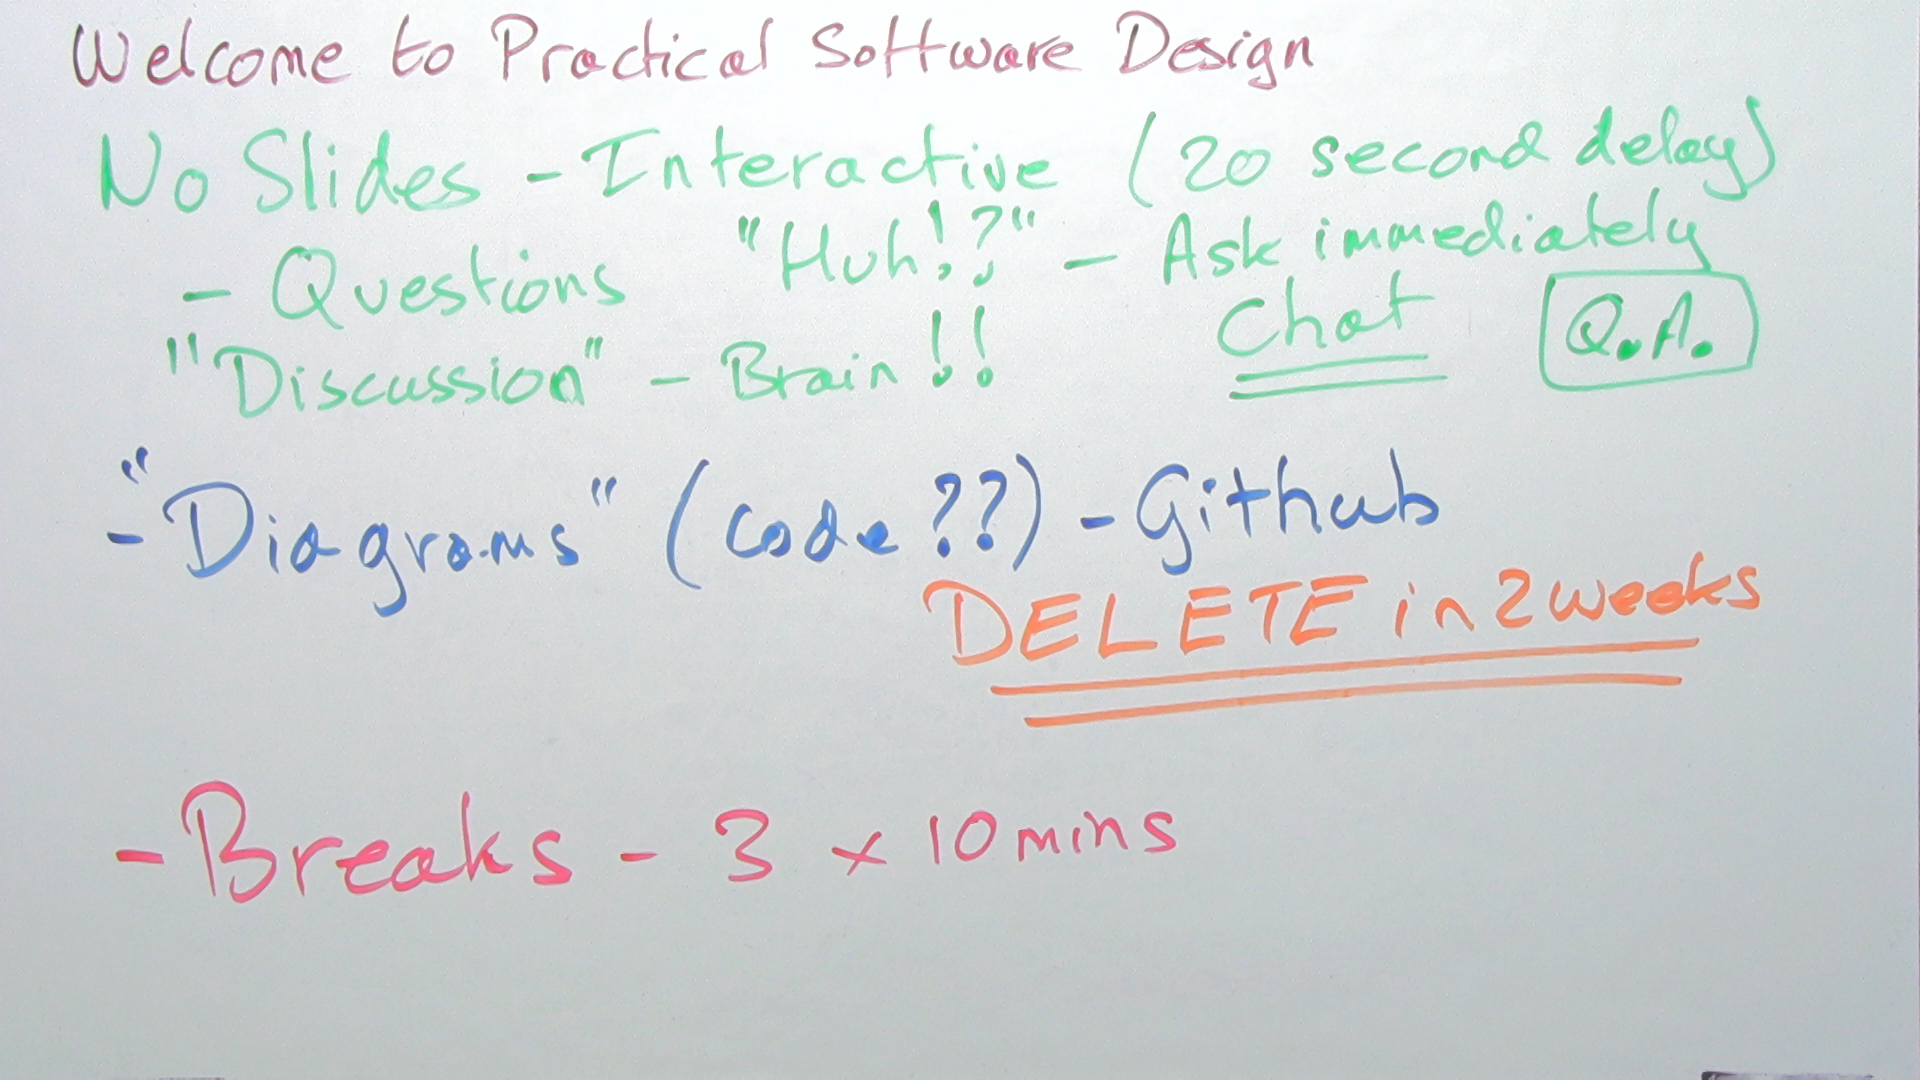 Welcome to Practical Software Design
No Slides - Interactive (20 second delay)
- Questions "Huh!?" - Ask immediately
Chat Q.A.
"Discussion" - Brain!!
- "Diagrams" (code??) - Github
DELETE in 2 weeks
- Breaks - 3 x 10 mins